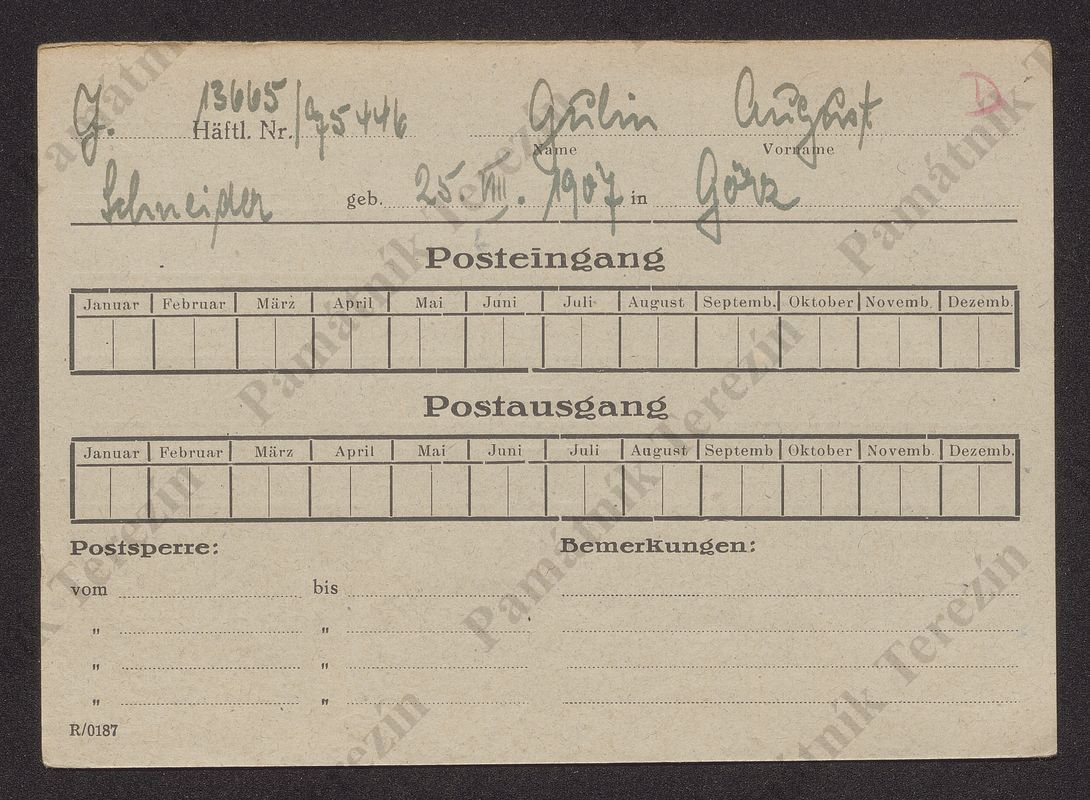 J. 13665 / 95446 Gulin August D
Häftl. Nr. Name Vorname
Schneider geb. 25. VIII. 1907 in Görz
Posteingang
Januar Februar März April Mai Juni Juli August Septemb. Oktober Novemb. Dezemb.
Postausgang
Januar Februar März April Mai Juni Juli August Septemb Oktober Novemb. Dezemb.
Postsperre: Bemerkungen:
vom bis
" "
" "
" "
R/0187
Památník Terezín